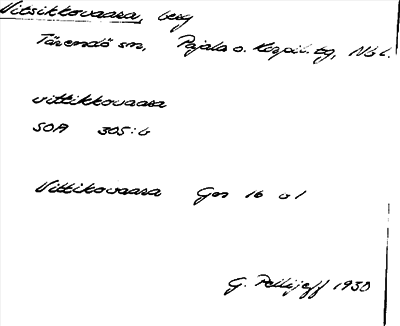 Vitsikkovaara, berg
Tärendö sn, Pajala o. Korpil. tg, Nb l.
vittikkovaara
SOA 305:6
Vittikovaara Gos 16 v1
G. Pellijeff 1930